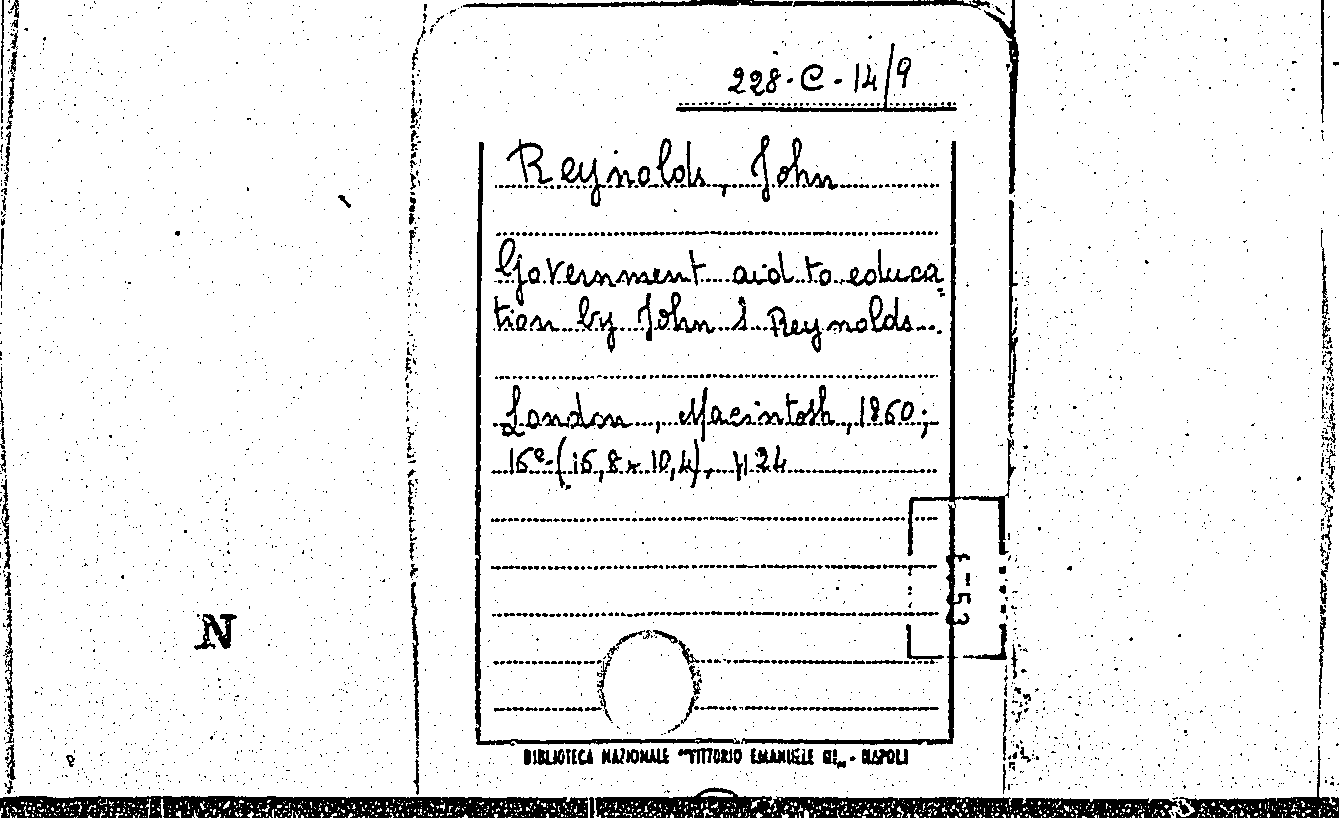 228-C-14/9
Reynolds, John
Government aid to educa=
tion by John S Reynolds...
London, Macintosh, 1860;
16° (16,8 x 10,4), p 24
F-53
N
BIBLIOTECA NAZIONALE "VITTORIO EMANUELE III" - NAPOLI